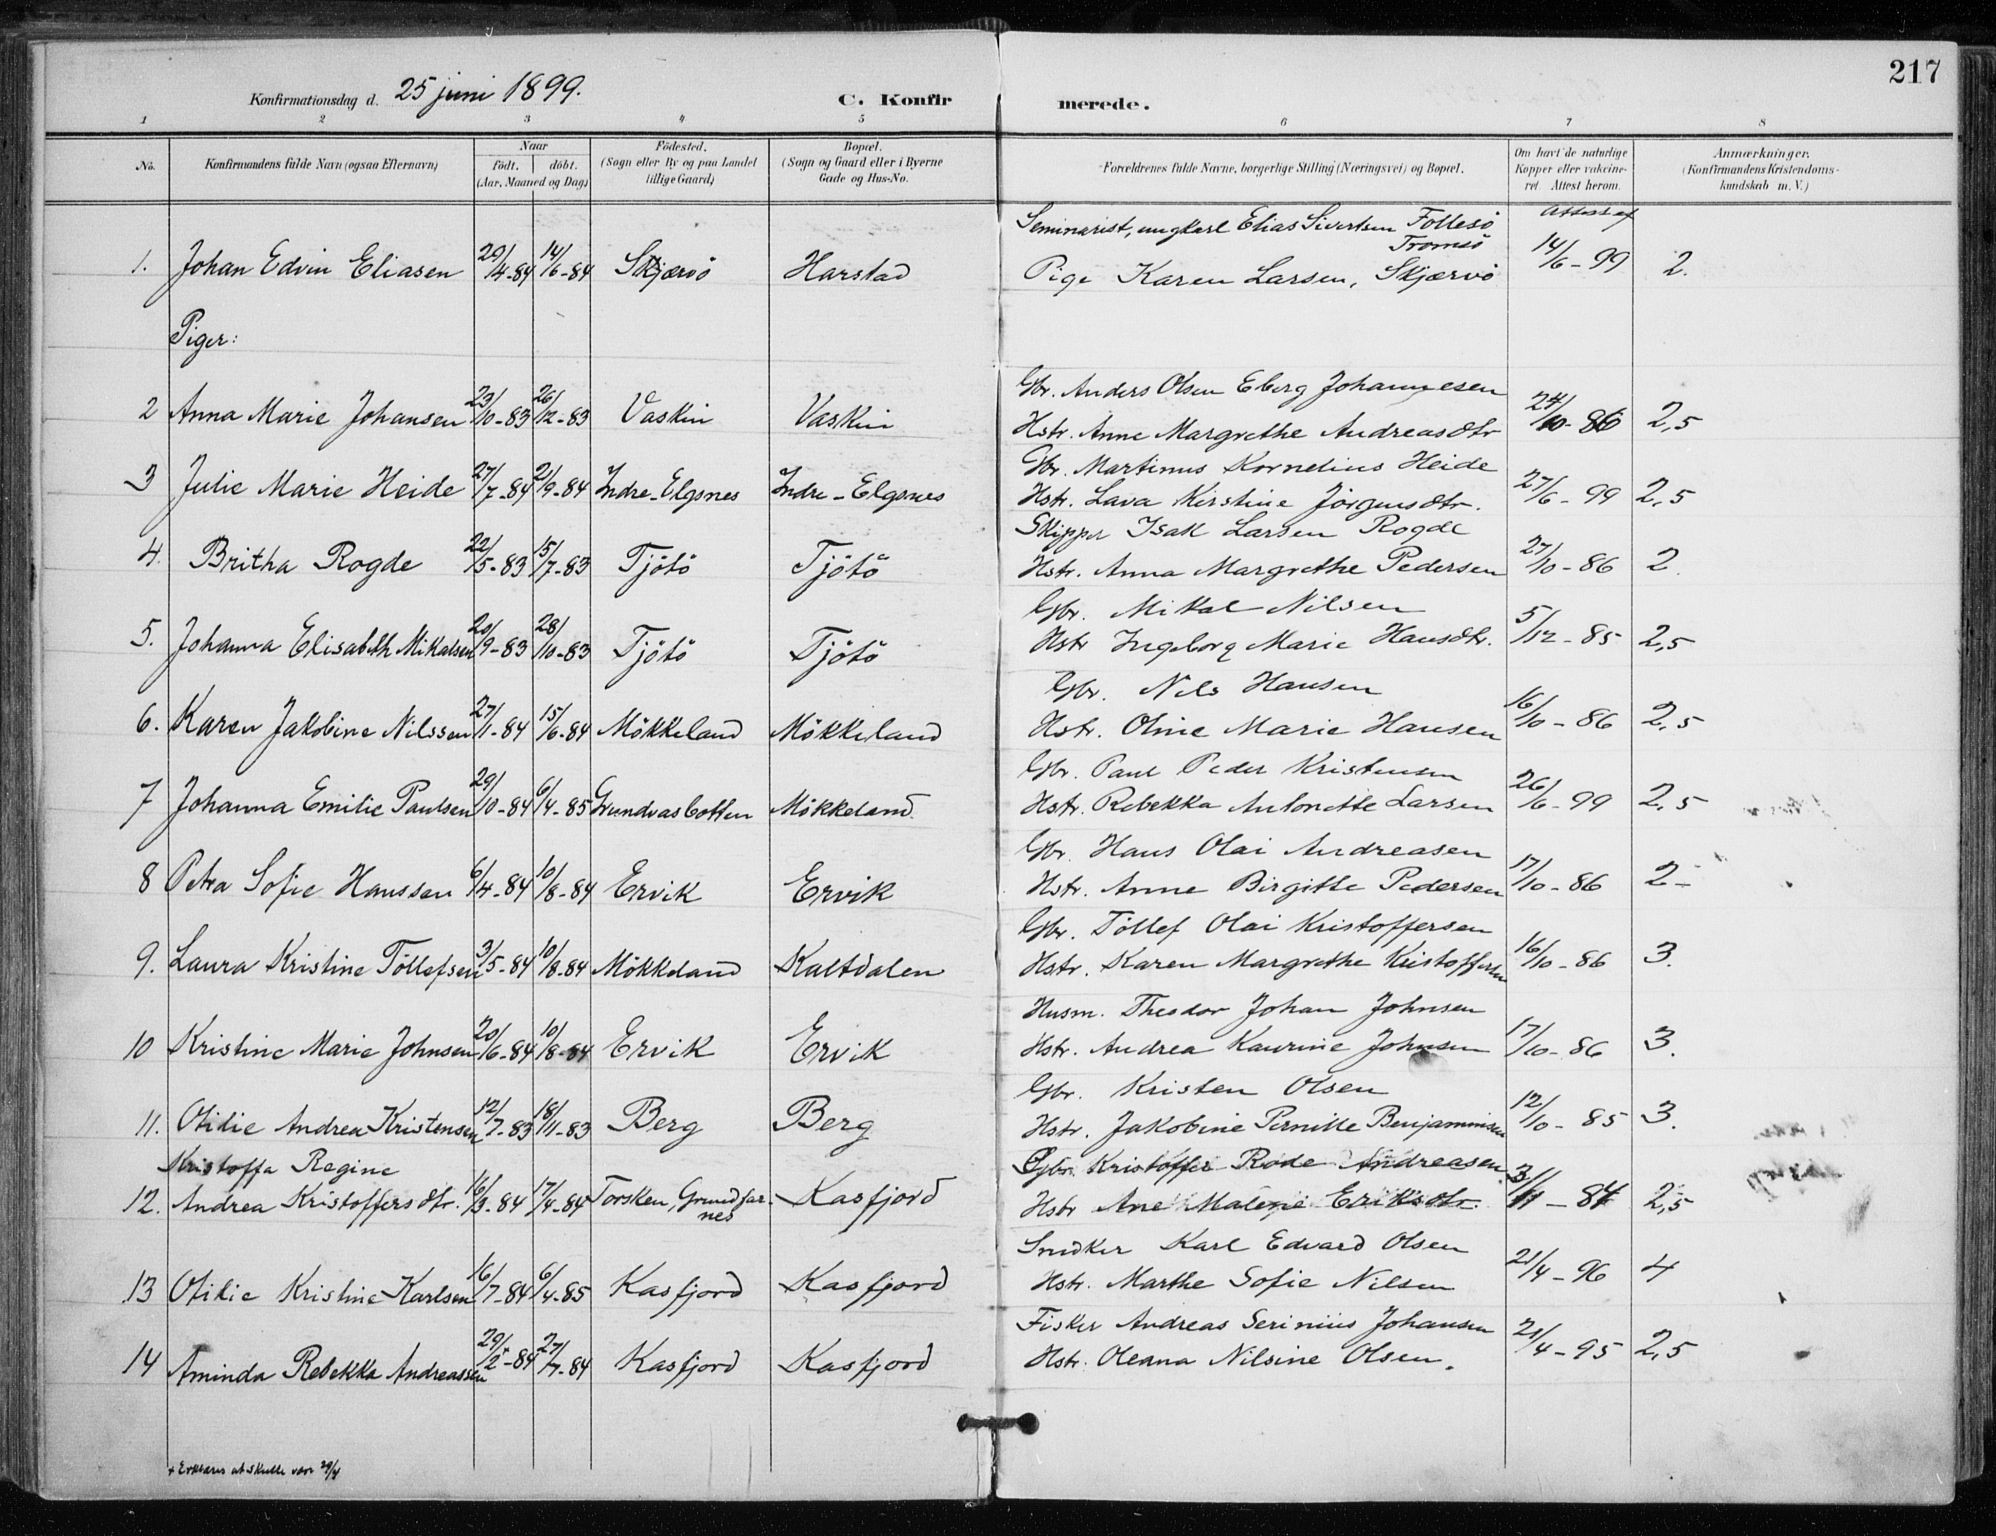 217
Konfirmationsdag d. 25 juni 1899. C. Konfirmerede.
1 2 3 4 5 6 7 8
No. Konfirmandens fulde Navn (ogsaa Efternavn) Naar födt. döbt. (Aar, Maaned og Dag) Födested. (Sogn eller By og paa Landet tillige Gaard) Bopæl. (Sogn og Gaard eller i Byerne Gade og Hus-No. Forældrenes fulde Navne, borgerlige Stilling (Næringsvei) og Bopæl. Om havt de naturlige Kopper eller vakcineret. Attest herom. Anmærkninger. (Konfirmandens Kristendomskundskab m. V.)
Seminarist, ungkarl Elias Sivertsen Follesö Attest af
Tromsö
1. Johan Edvin Eliasen 20/4-84 14/6-84 Skjærvö Harstad Pige Karen Larsen, Skjærvö 14/6-99 2.
Piger:
Gbr. Anders Olsen Eberg Johannesen
2 Anna Marie Johansen 23/10-83 26/12-83 Vaskin Vaskin Hstr. Anne Margrethe Andreasdtr 24/10-86 2,5
Gbr. Martinus Kornelius Heide
3 Julie Marie Heide 27/7-84 21/9-84 Indre-Elgsnes Indre-Elgsnes Hstr. Lava Kirstine Jörgensdtr. 27/6-99 2,5
Skipper Isak Larsen Rogde
4. Britha Rogde 22/5-83 15/7-83 Tjötö Tjötö Hstr. Anna Margrethe Pedersen 27/10-86 2.
Gbr. Mikal Nilsen
5. Johanna Elisabeth Mikalsen 20/9-83 28/10-83 Tjötö Tjötö Hstr Ingeborg Marie Hansdtr. 5/12-85 2,5
Gbr. Nils Hansen
6. Karen Jakobine Nilssen 27/1-84 15/6-84 Mökkeland Mökkeland Hstr. Oline Marie Hansen 16/10-86 2,5
Gbr. Paul Peder Kristensen
7 Johanna Emilie Paulsen 29/10-84 6/4-85 Grundvasbotten Mökkeland. Hstr. Rebekka Antonette Larsen 26/6-99 2,5
Gbr. Hans Olai Andreasen
8 Petra Sofie Hanssen 6/4-84 10/8-84 Ervik Ervik Hstr. Anne Birgitte Pedersen 17/10-86 2-
Gbr. Töllef Olai Kristoffersen
9. Laura Kristine Töllefsen 3/5-84 10/8-84 Mökkeland Kaltdalen Hstr. Karen Margrethe Kristoffersen 16/10-86 3.
Husm. Theodor Johan Johnsen
10 Kristine Marie Johnsen 20/6-84 10/8-84 Ervik Ervik Hstr. Andrea Kaurine Johnsen 17/10-86 3.
Gbr. Kristen Olsen
11. Otilie Andrea Kristensen 12/7-83 18/11-83 Berg Berg Hstr. Jakobine Pernille Benjaminsen 12/10-85 3.
Kristoffa Regine Gbr. Kristoffer Rode Andreasen
12. Andrea Kristoffersdtr. 16/3-84 17/4-84 Torsken, Grundfarnes Kasfjord Hstr Ane Malene Eriksdtr. 3/11-84 2,5
Snedker Karl Edvard Olsen
13 Otilie Kristine Karlsen 16/7-84 6/4-85 Kasfjord Kasfjord Hstr. Marthe Sofie Nilsen 21/4-96 4
Fisker Andreas Serinius Johansen
14 Aminda Rebekka Andreassen 29/2+-84 27/7-84 Kasfjord Kasfjord Hstr. Oleana Nilsine Olsen. 21/4-95 2,5
+ Erklæres at skulle være 29/4